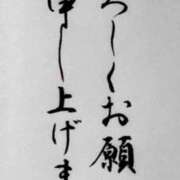 ろしくお願
申し上げま